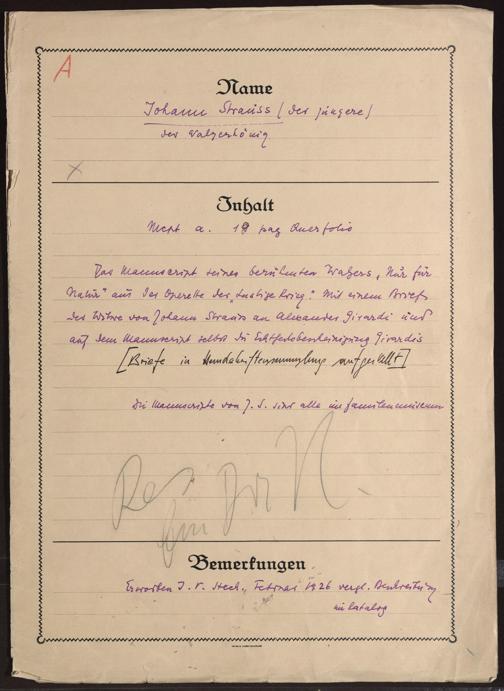 A
Name
Johann Strauss (der jüngere)
der Walzerkönig
x
Inhalt
Mcpt a. 19 pag Querfolio
Das Manuscript seines berühmten Walzers „Nur für
Natur" aus der Operette der „lustige Krieg". Mit einem Briefe
der Witwe von Johann Strauss an Alexander Girardi und
auf dem Manuscript selbst die Echtheitsbescheinigung Girardis
[Briefe in Handschriftensammlung aufgestellt]
Die Manuscripte von J. S. sind alle im Familienmuseum
Bemerkungen
Erworben Februar 1926 vergl. Beschreibung
im Katalog